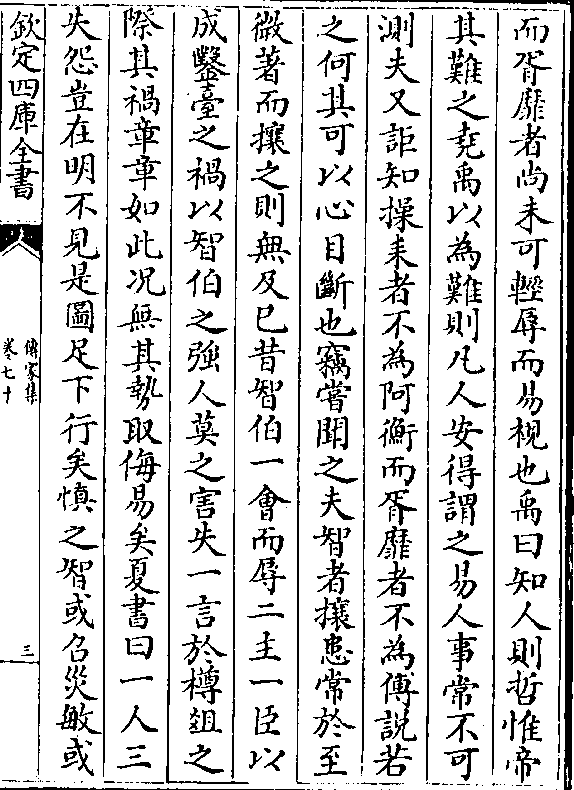 而胥靡者尚未可輕辱而易視也禹曰知人則哲惟帝
其難之堯禹以為難則凡人安得謂之易人事常不可
測夫又詎知操耒者不為阿衡而胥靡者不為傅說若
之何其可以心目斷也竊嘗聞之夫智者攘患常於至
微著而攘之則無及已昔智伯一會而辱二主一臣以
成鑿臺之禍以智伯之強人莫之害失一言於樽俎之
際其禍章章如此况無其勢取侮易矣夏書曰一人三
失怨豈在明不見是圖足下行矣慎之智或召災敏或
欽定四庫全書
傳家集
卷七十
三